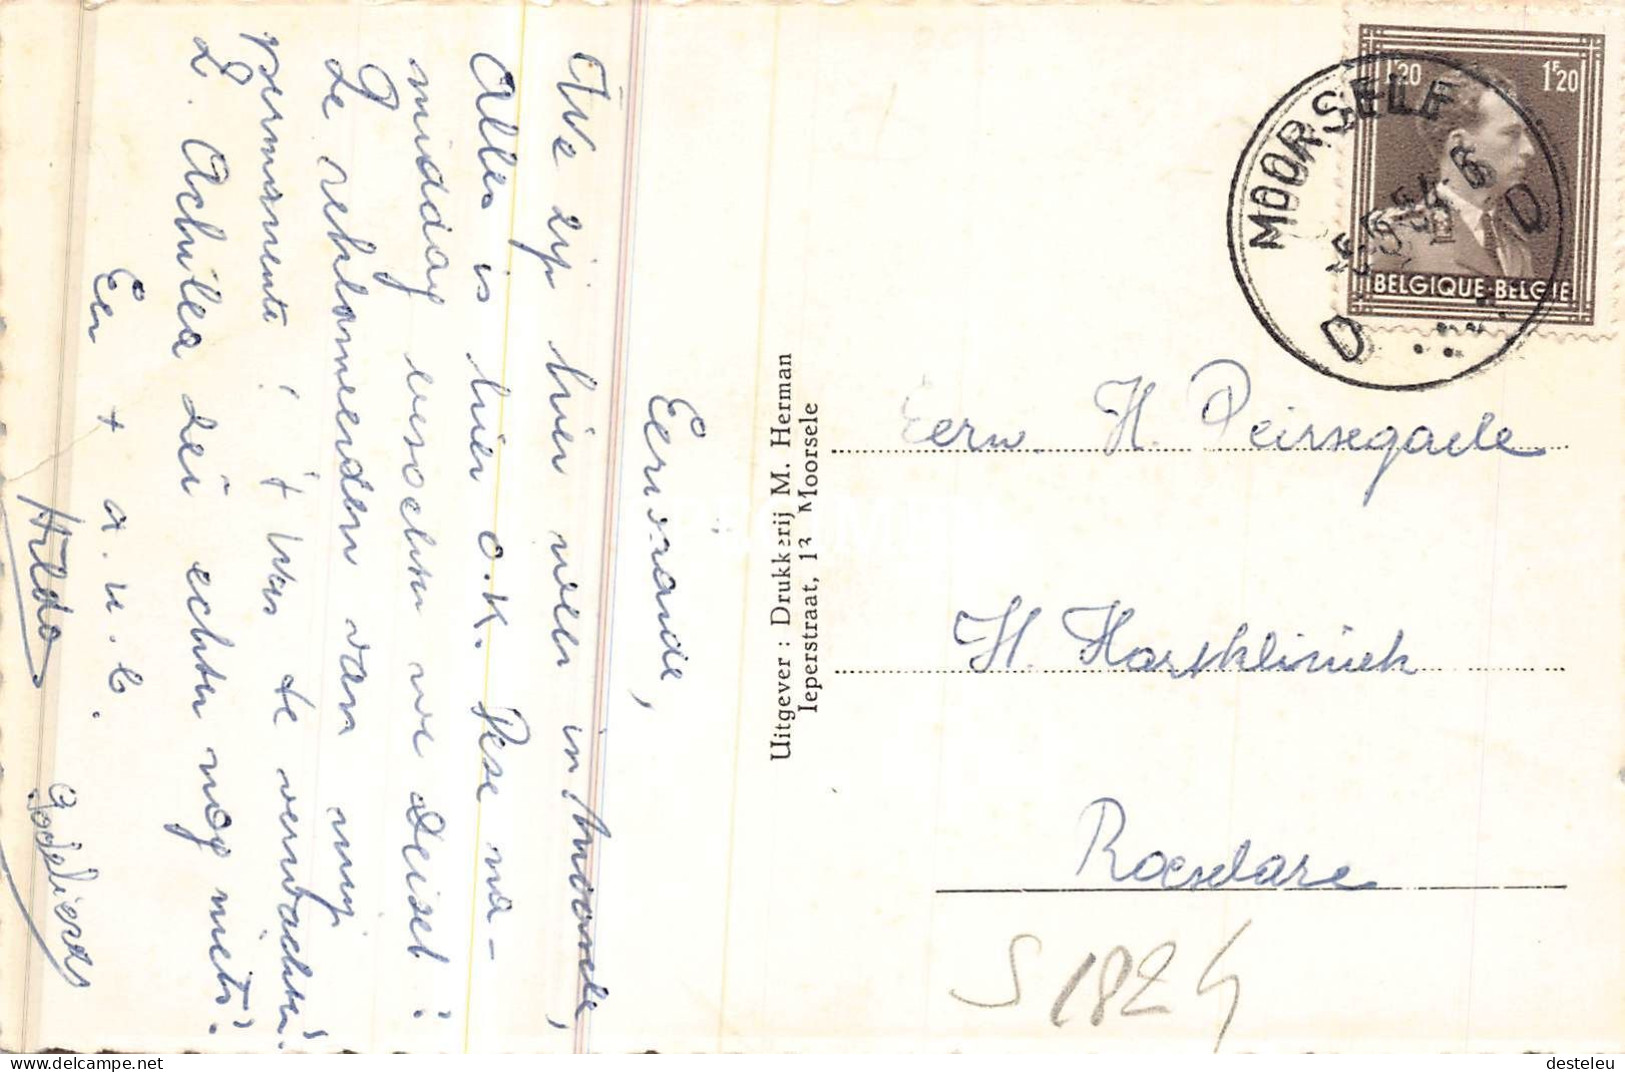 Eerwaarde,
We zijn hier weer in Moorsele,
Alles is hier o.k. Deze na-
middag
De van mij
permanente ! 't Was te verwachten!
Z. Achilea zei echter nog niets!
Eer + a.u.b.
Hilda
Godelieve
Uitgever : Drukkerij M. Herman
Ieperstraat, 13 Moorsele
1F20 1F20
BELGIQUE-BELGIE
MOORSELE
D D
Eerw. H. Peirsegaele
H. Hartkliniek
Roeselare
S1824
desteleu